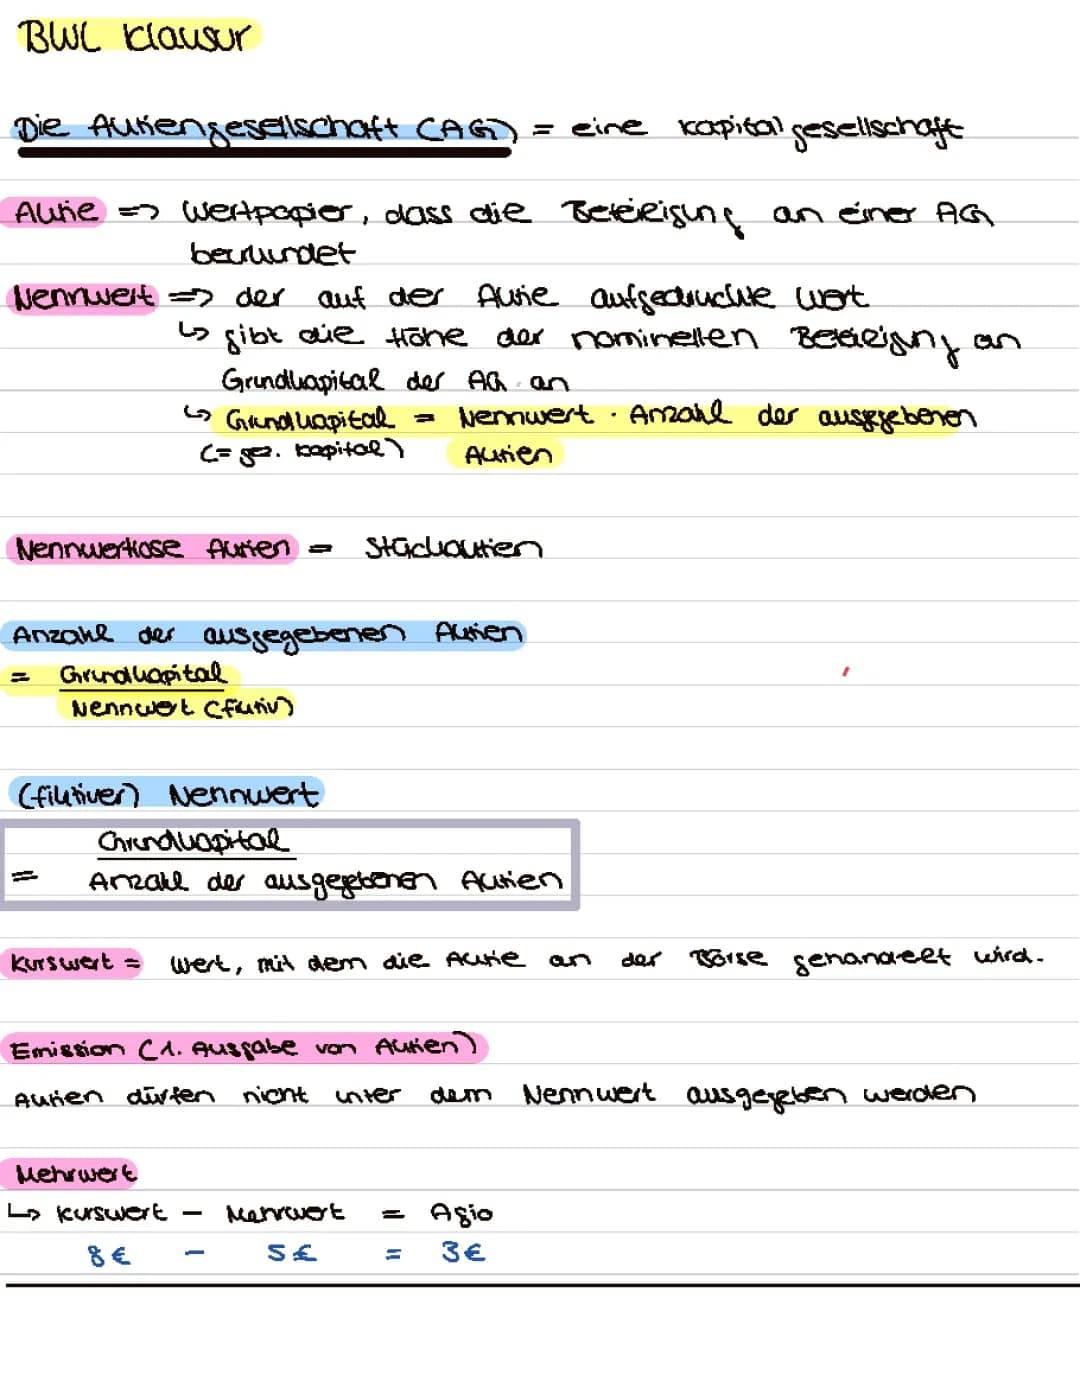 BWL Klausur
Die Aktiengesellschaft (AG) = eine Kapitalgesellschaft
Aktie => Wertpapier, dass die Beteiligung an einer AG
beurkundet
Nennwert => der auf der Aktie aufgedruckte Wert
↳ gibt die Höhe der nominellen Beteiligung an
Grundkapital der AG an
↳ Grundkapital = Nennwert · Anzahl der ausgegebenen
(= gez. Kapital) Aktien
Nennwertlose Aktien = Stückaktien
Anzahl der ausgegebenen Aktien
= Grundkapital
Nennwert (fiktiv)
(fiktiver) Nennwert
Grundkapital
= Anzahl der ausgegebenen Aktien
Kurswert = Wert, mit dem die Aktie an der Börse gehandelt wird.
Emission (1. Ausgabe von Aktien)
Aktien dürfen nicht unter dem Nennwert ausgegeben werden
Mehrwert
↳ Kurswert - = Agio
8€ - 5€ = 3€